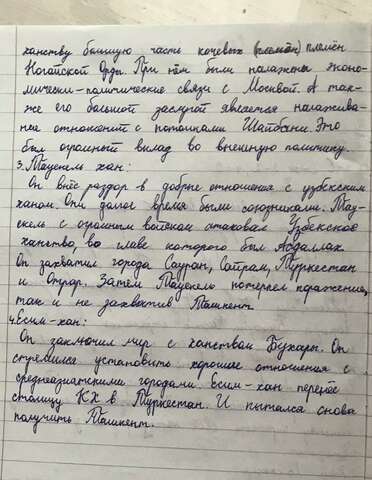 ханству большую часть кочевых (племён) племён
Ногайской Орды. При нём были налажены эконо-
мически-политические связи с Москвой. А так-
же его большой заслугой является налажива-
ние отношений с потомками Шайбани. Это
был огромный вклад во внешнюю политику.
3. Тауекель хан:
Он внёс раздор в добрые отношения с узбекским
ханом. Они долгое время были союзниками. Тау-
екель с огромным войском атаковал Узбекское
ханство, во главе которого был Абдаллах.
Он захватил города Сауран, Сайрам, Туркестан
и Отрар. Затем Тауекель потерпел поражение,
так и не захватив Ташкент.
4. Есим-хан:
Он заключил мир с ханством Бухары. Он
стремился установить хорошие отношения с
среднеазиатскими городами. Есим-хан перенёс
столицу КХ в Туркестан. И пытался снова
получить Ташкент.